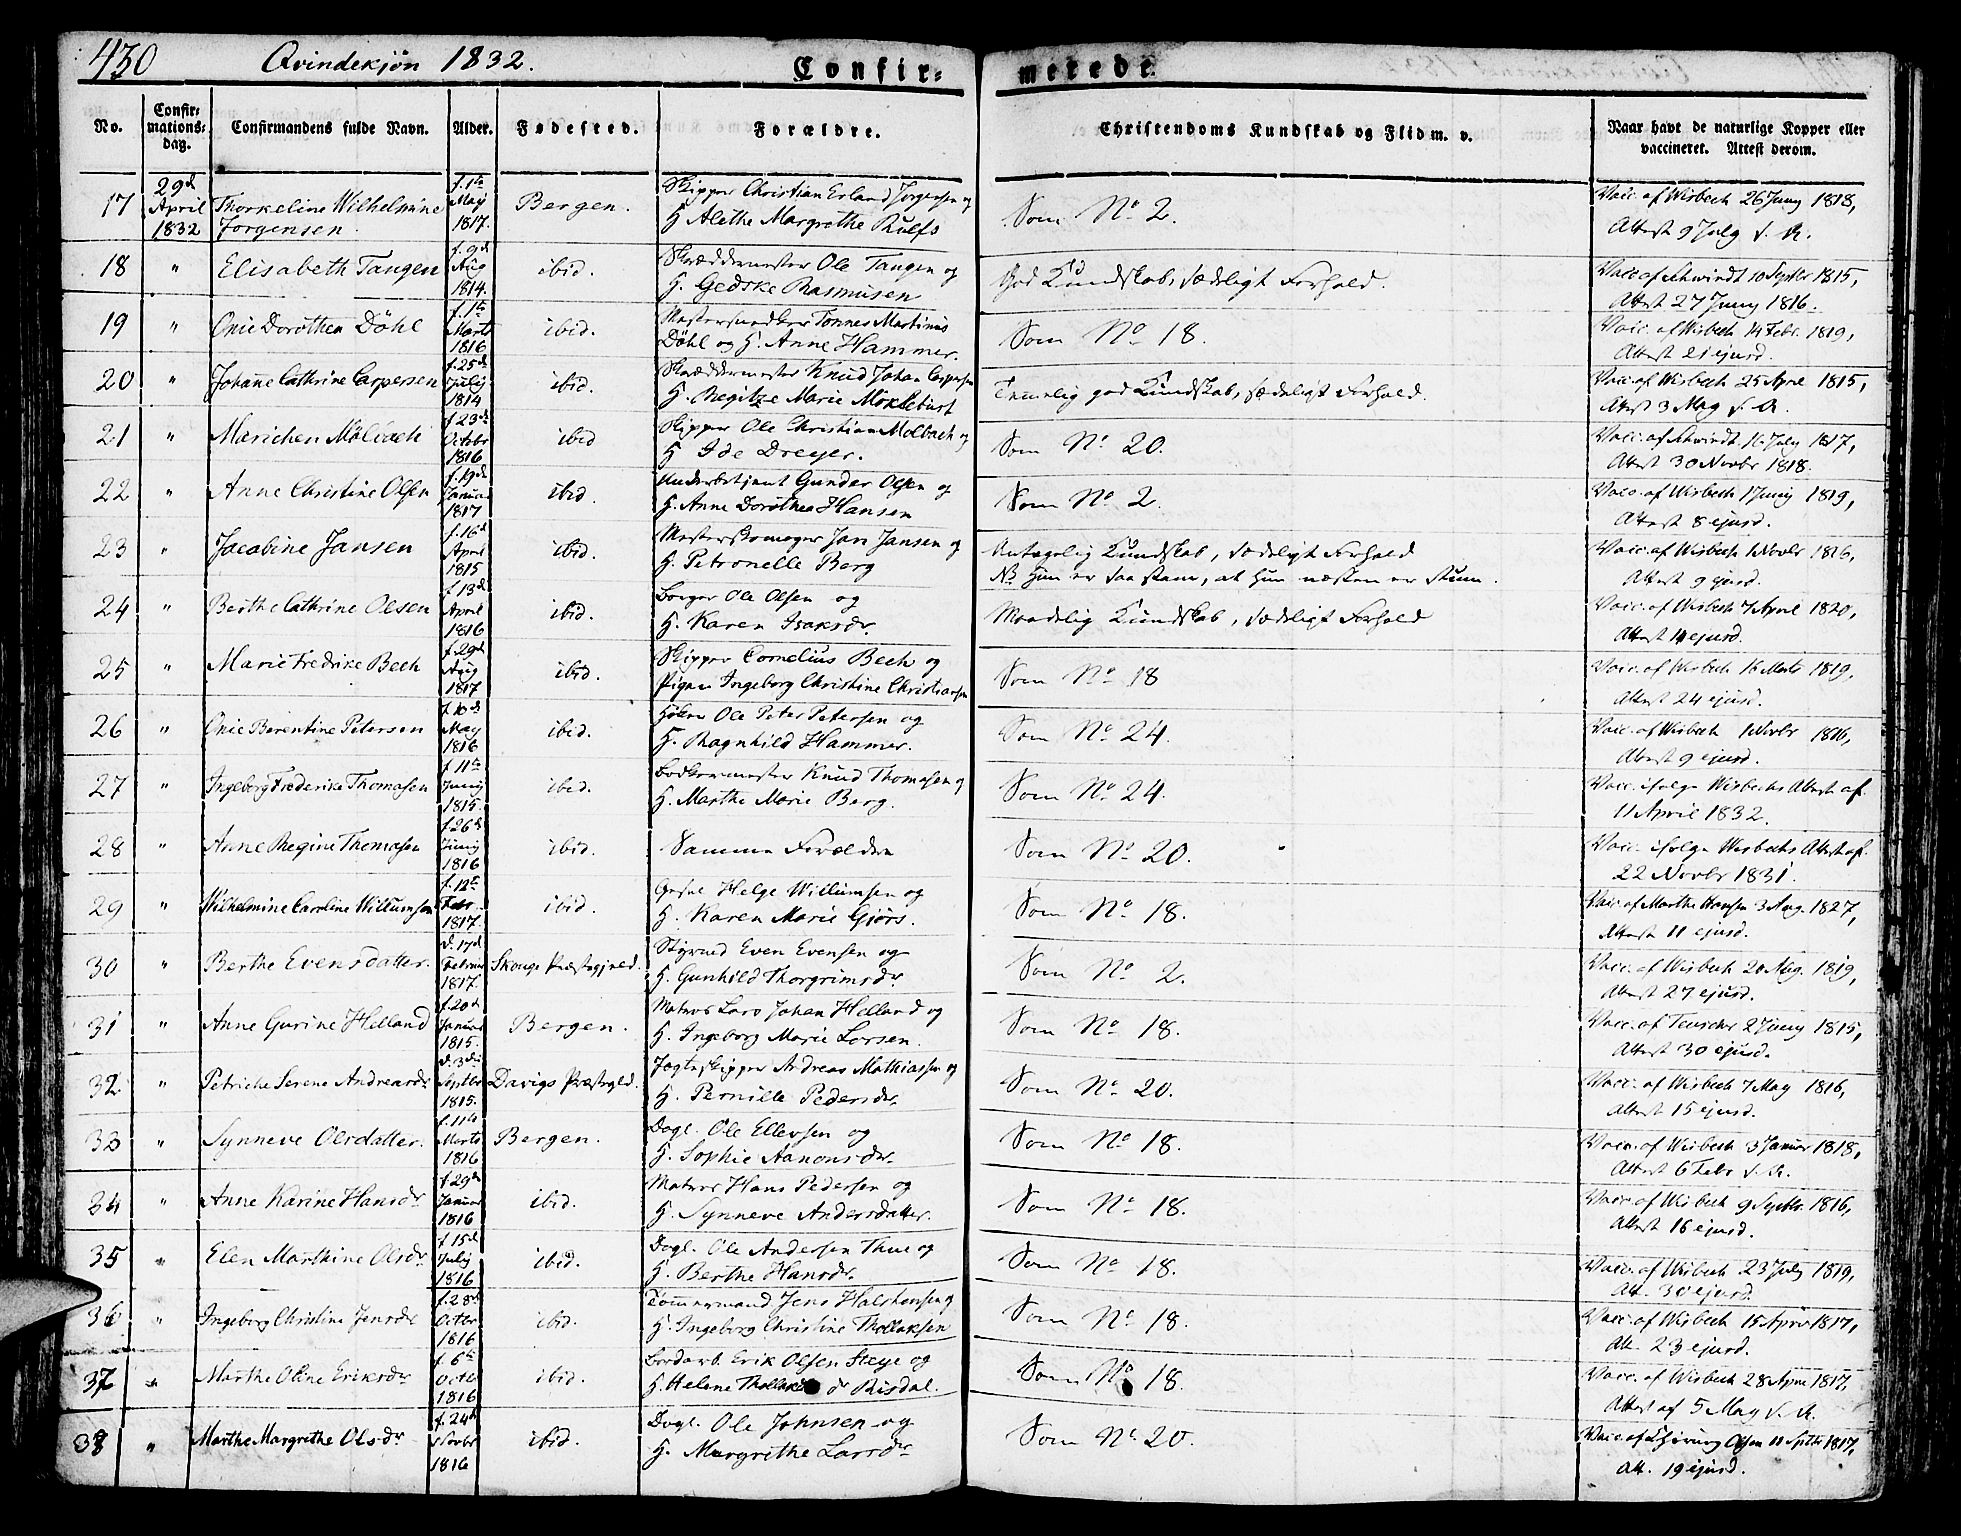 430 Qvindekjön 1832. Confir= merede.
No. Confir=mations=dag. Confirmandens fulde Navn. Alder. Fødested. Forældre. Christendoms Kundskab og Flid m. v. Naar havt de naturlige Kopper eller vaccineret. Attest derom.
17 29d April 1832 Thorkeline Wilhelmine Jorgensen. f. 1te May 1817. Bergen. Skipper Christian Erland Jörgensen og H. Alethe Margrethe Rulfs Som No 2. Vacc. af Wisbech 26 Juny 1818, Attest 9 July s. A.
18 " Elisabeth Tangen f. 9d Aug 1814. ibid. Skræddermester Ole Tangen og H. Gedske Rasmusen God Kundskab, sædeligt Forhold. Vacc. af Schwindt 10 Septbr 1815, Attest 27 Juny 1816.
19 " Onie Dorothea Döhl f. 1te Marts 1816 ibid. Mestersvend Tönnes Martinus Döhl og H. Anne Hammer. Som No 18. Vacc. af Wisbech 14 Febr. 1819, Attest 21 ejusd.
20 " Johanne Cathrine Caspersen f. 25d July 1814 ibid. Skræddermester Knud Johan Caspersen H. Regitze Marie Mokleburst Temelig god Kundskab, sædeligt Forhold. Vacc. af Wisbech 25 April 1815, Attest 3 May s. A.
21 " Marichen Mölbach f 23d Octobr 1816 ibid Skipper Ole Christian Molbach og H Ide Dreyer. Som No 20. Vacc. af Schwindt 16 July 1817, Attest 30 Novbr 1818.
22 " Anne Christine Olsen f. 19d Januar 1817 ibid. Underbetjent Gunder Olsen og H. Anne Dorothea Hansen Som No 2. Vacc. af Wisbech 1 Juny 1819, Attest 8 ejusd.
23 " Jacobine Jansen f. 16d April 1815 ibid. Mesterskomager Jan Jansen og H. Petronelle Berg Antagelig Kundskab, sædeligt Forhold NB Hun er saa stam, at hun næsten er stum. Vacc. af Wisbech 1 Novbr 1816, Attest 9 ejusd.
24 " Berthe Cathrine Olsen f 13d April 1816 ibid. Borger Ole Olsen og H. Karen Isaksdr. Maadelig Kundskab, sædeligt Forhold Vacc. af Wisbech 7 April 1820, Attest 14 ejusd.
25 " Marie Fredrike Bech f. 29d Aug 1817 ibid. Skipper Cornelius Bech og Pigen Ingeborg Christine Christiansen Som No 18 Vacc. af Wisbech 16 Marts 1819, Attest 24 ejusd.
26 " Onie Berentine Petersen f. 10d May 1816 ibid. Höker Ole Peter Petersen og H. Ragnhild Hammer. Som No 24. Vacc. af Wisbech 1 Novbr 1816, Attest 9 ejusd.
27 " Ingeborg Frederike Thomasen f 11te Juny 1815. ibid. Bödkermester Knud Thomasen og H. Marthe Marie Berg. Som No 24. Vacc. ifølge Wisbechs Attest af 11 April 1832.
28 " Anne Regine Thomasen f 26d Juny 1816 ibid. Samme Forældre Som No 20. Vacc. ifølge Wisbechs Attest af 22 Novbr 1831.
29 " Wilhelmine Caroline Willumsen f. 12te Febr. 1817. ibid. Helge Willumsen og H. Karen Marie Gjörs. Som No 18. Vacc. af Marthe Hansen 3 Aug. 1827, Attest 11 ejusd.
30 " Berthe Evensdatter. d. 17d Februar 1817. Skouge Præstegjeld. Styrmd Even Evensen og H. Gunhild Thorgrimsdr. Som No 2. Vacc. af Wisbech 20 Aug. 1819, Attest 27 ejusd.
31 " Anne Gurine Helland f. 20d Januar 1815. Bergen. Matros Lars Johan Helland og H. Ingeborg Marie Larsen. Som No 18. Vacc. af Teuscher 2 Juny 1815, Attest 30 ejusd.
32. " Petriche Serene Andreasdr d. 3die Septbr 1815. Davigs Præstegjeld. Jagteskipper Andreas Mathiassen og H. Pernille Pedersdr. Som No 20. Vacc. af Wisbech 7 May 1816, Attest 15 ejusd.
33 " Synneve Olsdatter. f. 11te Marts 1816 Bergen. Dagl. Ole Ellevsen og H. Sophie Aanonsdr. Som No 18. Vacc. af Wisbech 3 Januar 1818, Attest 6 Febr s. A.
34 " Anne Karine Hansdr f 29d Januar 1816 ibid. Matros Hans Pedersen og H. Synneve Andersdatter. Som No 18. Vacc. af Wisbech 9 Septbr. 1816, Attest 16 ejusd.
35 " Elen Marthine Olsdr f 15d July 1816 ibid. Dagl. Ole Andersen Thue og H. Berthe Hansdr. Som No 18. Vacc. af Wisbech 23 July 1819, Att. 30 ejusd.
36 " Ingeborg Christine Jensdr f. 28d Octbr 1816 ibid. Tömmermand Jens Halstensen og H. Ingeborg Christine Thollaksen Som No 18. Vacc. af Wisbech 15 April 1817, Att. 23 ejusd.
37 " Marthe Oline Eriksdr f 6te Octbr 1816 ibid. Bordarb. Erik Olsen Steye og H. Helene dr Risdal. Som No 18. Vacc. af Wisbech 28 April 1817, Attest af 5 May s. A.
38 " Marthe Margrethe Olsdr f. 24d Novbr 1816 ibid. Dagl. Ole Johnsen og H. Margrethe Larsdr Som No 20. Vacc. af Olsen 11 Septbr 1817, Att. 19 ejusd.